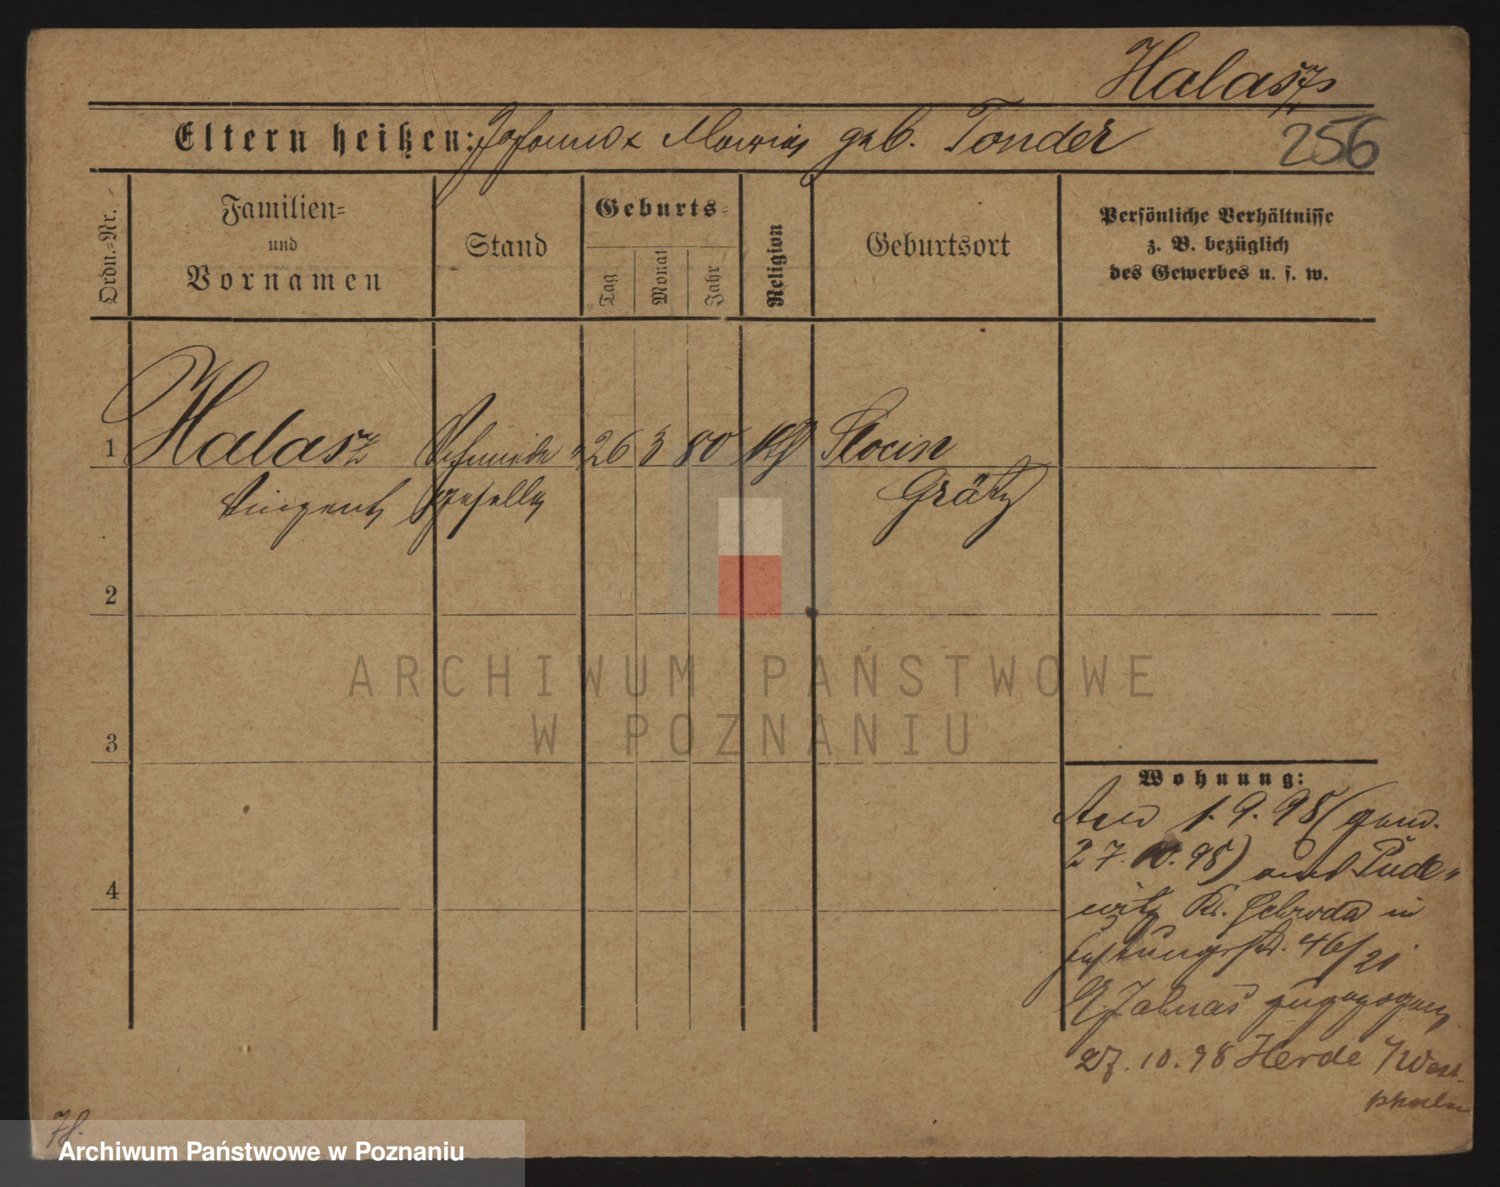 Halasz
256
Eltern heißen: Johann x Maria geb. Tonder
Ordn.-Nr.
Familien-
und
Vornamen
Stand
Geburts-
Tag
Monat
Jahr
Religion
Geburtsort
Persönliche Verhältnisse
z. B. bezüglich
des Gewerbes u. s. w.
1 Halasz Schmiede- 26 3 80 kth Slocin
Vinzent geselle Grätz
2
ARCHIWUM PAŃSTWOWE
W POZNANIU
3
Wohnung:
1. 9. 98 (gem.
27. 10. 98) aus Pude-
witz Kr. Schroda in
46/21
zugezogen
27. 10. 98 Herde /West-
phalen
4
Archiwum Państwowe w Poznaniu